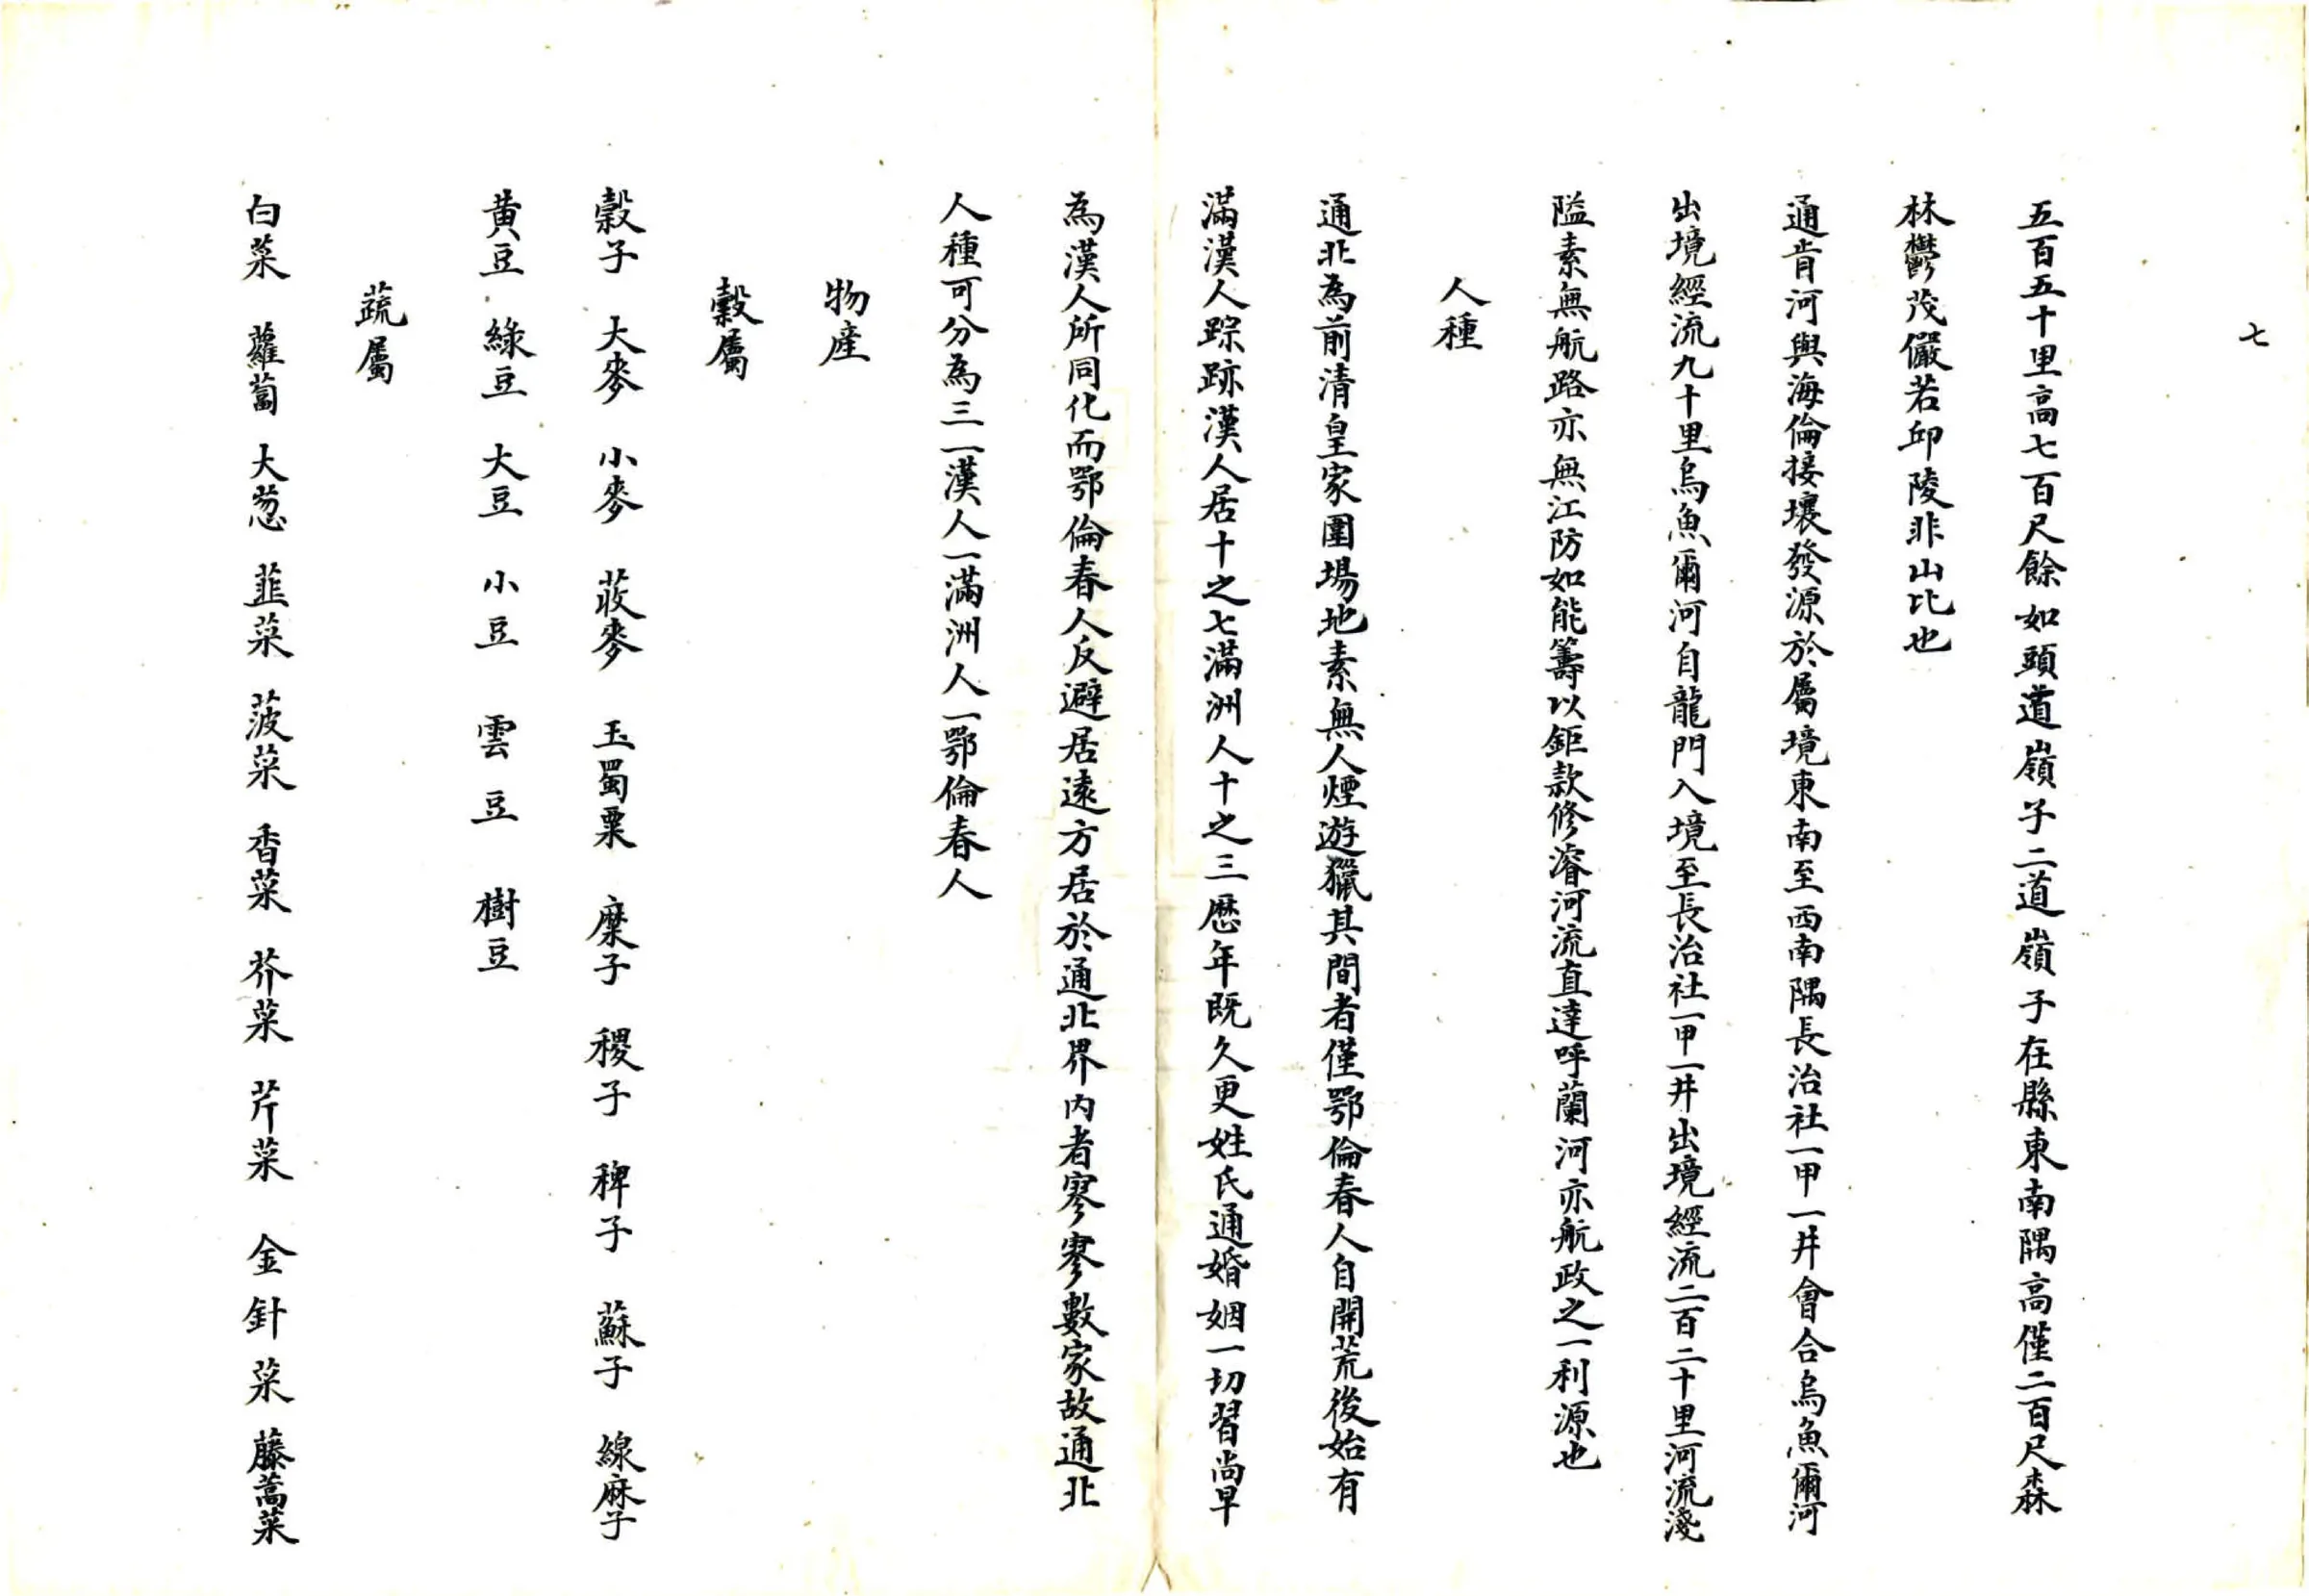 七
五百五十里高七百尺餘如頭道嶺子二道嶺子在縣東南隅高僅二百尺森
林鬱茂儼若邱陵非山比也
通肯河與海倫接壤發源於屬境東南至西南隅長治社一甲一井會合烏魚爾河
出境經流九十里烏魚爾河自龍門入境至長治社一甲一井出境經流二百二十里河流淺
隘素無航路亦無江防如能籌以鉅款修濬河流直達呼蘭河亦航政之一利源也
人種
通北為前清皇家圍場地素無人煙遊獵其間者僅鄂倫春人自開荒後始有
滿漢人踪跡漢人居十之七滿洲人十之三歷年既久更姓氏通婚姻一切習尚早
為漢人所同化而鄂倫春人反避居遠方居於通北界內者寥寥數家故通北
人種可分為三一漢人一滿洲人一鄂倫春人
物產
穀屬
穀子 大麥 小麥 莜麥 玉蜀粟 糜子 稷子 稗子 蘇子 線麻子
黃豆 綠豆 大豆 小豆 雲豆 樹豆
蔬屬
白菜 蘿蔔 大葱 韮菜 菠菜 香菜 芥菜 芹菜 金針菜 藤蒿菜